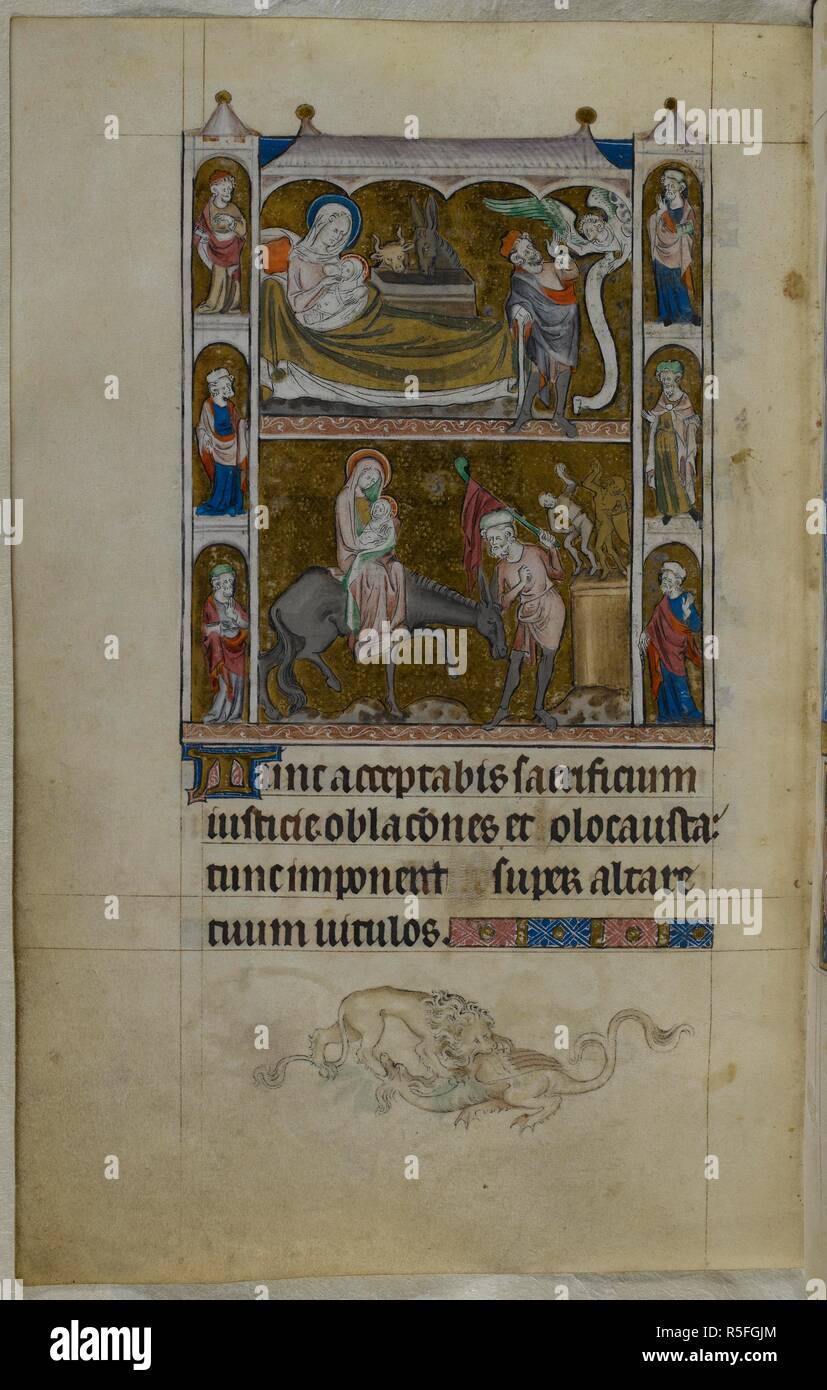 Tunc acceptabis sacrificium
iusticie oblacōnes et olocausta:
tunc imponent super altare
tuum uitulos.
a
alamy
alamy
Image ID: R5FGJM
www.alamy.com